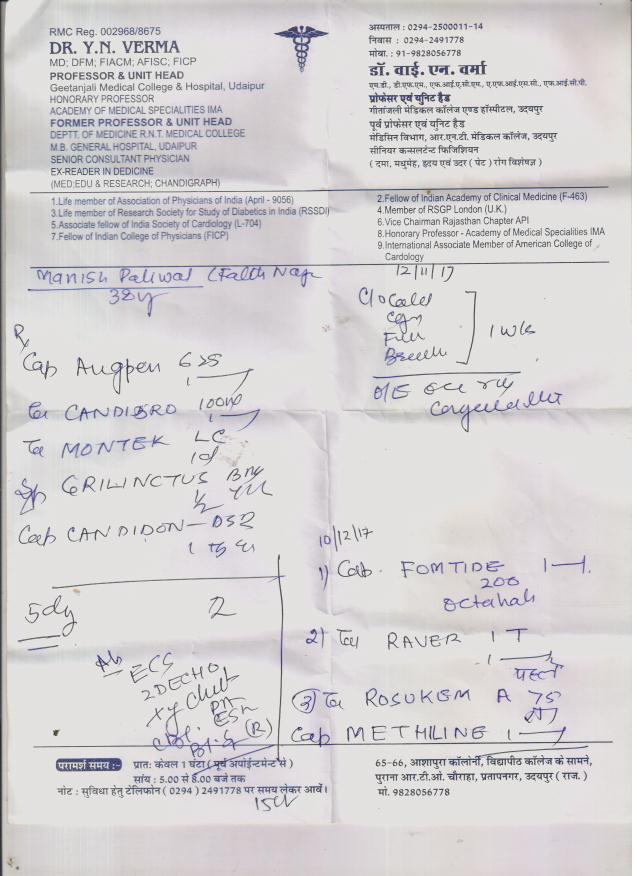 RMC Reg. 002968/8675
DR. Y.N. VERMA
MD; DFM; FIACM; AFISC; FICP
PROFESSOR & UNIT HEAD
Geetanjali Medical College & Hospital, Udaipur
HONORARY PROFESSOR
ACADEMY OF MEDICAL SPECIALITIES IMA
FORMER PROFESSOR & UNIT HEAD
DEPTT. OF MEDICINE R.N.T. MEDICAL COLLEGE
M.B. GENERAL HOSPITAL, UDAIPUR
SENIOR CONSULTANT PHYSICIAN
EX-READER IN DEDICINE
(MED;EDU & RESEARCH; CHANDIGRAPH)
अस्पताल : 0294-2500011-14
निवास : 0294-2491778
मोबा. : 91-9828056778
डॉ. वाई. एन. वर्मा
एम.डी., डी.एफ.एम., एफ.आई.ए.सी.एम., ए.एफ.आई.एस.सी., एफ.आई.सी.पी.
प्रोफेसर एवं युनिट हैड
गीतांजली मेडिकल कॉलेज एण्ड हॉस्पीटल, उदयपुर
पूर्व प्रोफेसर एवं युनिट हैड
मेडिसिन विभाग, आर.एन.टी. मेडिकल कॉलेज, उदयपुर
सीनियर कन्सलटेन्ट फिजिशियन
( दमा, मधुमेह, हृदय एवं उदर ( पेट ) रोग विशेषज्ञ )
1.Life member of Association of Physicians of India (April - 9056)
3.Life member of Research Society for Study of Diabetics in India (RSSDI)
5.Associate fellow of India Society of Cardiology (L-704)
7.Fellow of Indian College of Physicians (FICP)
2.Fellow of Indian Academy of Clinical Medicine (F-463)
4.Member of RSGP London (U.K.)
6.Vice Chairman Rajasthan Chapter API
8.Honorary Professor - Academy of Medical Specialities IMA
9.International Associate Member of American College of
Cardology
Manish Paliwal (Fateh Nagar
38y
12/11/17
C/o Cold
1 wk
O/E
Rx
Cap Augpen 625
1
100
MONTEK LC
1 d
GRILINCTUS
1/2
Cap CANDIDON-DSR
1
5 dy
2
Adv
ECG
2DECHO
10/12/17
1) Cap. FOMTIDE 1—1
200
Octahale
2) Tab RAVER 1 T
1
3) Tab ROSUKEM A 75
Cap METHILINE 1
परामर्श समय :- प्रात: केवल 1 घंटा ( पूर्व अपोईन्टमेन्ट से )
सांय : 5.00 से 8.00 बजे तक
नोट : सुविधा हेतु टेलिफोन ( 0294 ) 2491778 पर समय लेकर आवें।
65-66, आशापुरा कॉलोनी, विद्यापीठ कॉलेज के सामने,
पुराना आर.टी.ओ. चौराहा, प्रतापनगर, उदयपुर ( राज. )
मो. 9828056778